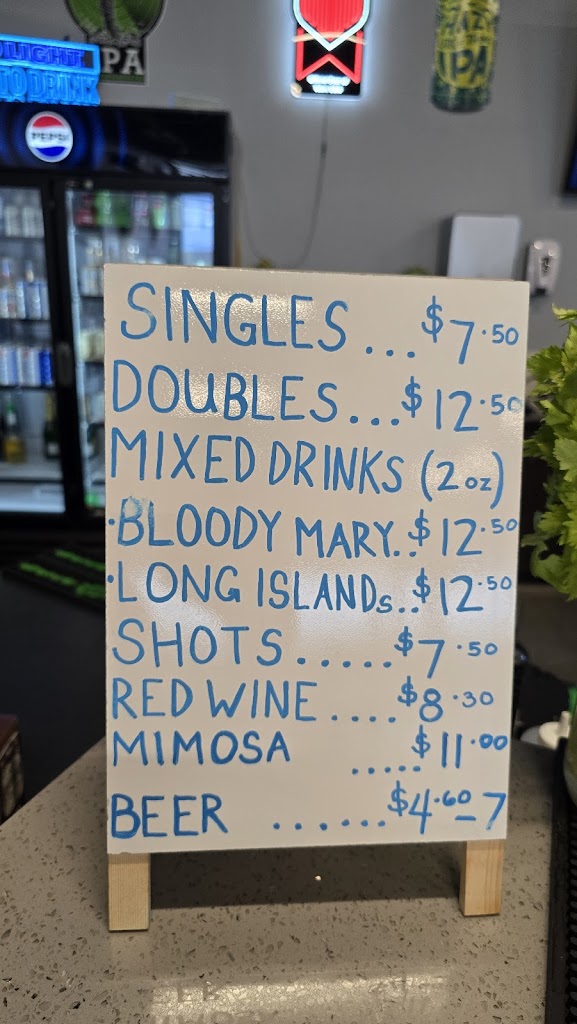 UDLIGHT
TO DRINK
PA
IPA
PEPSI
SINGLES ... $7.50
DOUBLES... $12.50
MIXED DRINKS (2oz)
·BLOODY MARY.. $12.50
·LONG ISLANDs.. $12.50
SHOTS ..... $7.50
RED WINE .... $8.30
MIMOSA ..... $11.00
BEER ...... $4.60-7